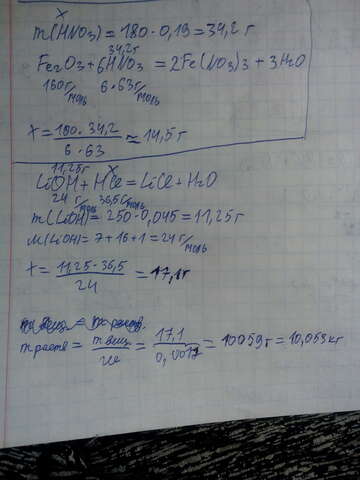 x
m(HNO3) = 180 · 0,19 = 34,2 г
34,2г
Fe2O3 + 6HNO3 = 2Fe(NO3)3 + 3H2O
160г/моль 6·63г/моль
x = 160 · 34,2 / 6 · 63 ≈ 14,5 г
11,25г x
LiOH + HCl = LiCl + H2O
24 г/моль 36,5г/моль
m(LiOH) = 250 · 0,045 = 11,25г
M(LiOH) = 7 + 16 + 1 = 24 г/моль
x = 11,25 · 36,5 / 24 = 17,1г
m раств = m вещ / w = 17,1 / 0,0017 = 10059 г = 10,059 кг